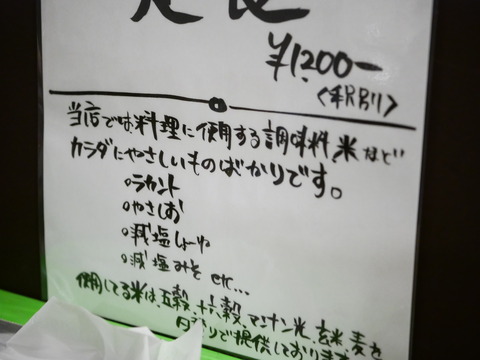 定食
¥1,200-
<税別>
当店では料理に使用する調味料、米など
カラダにやさしいものばかりです。
○ラカント
○やさしお
○減塩しょーゆ
○減塩みそ etc...
使用してる米は、五穀、十六穀、マンナン米、玄米、麦を
日がわりで提供しております